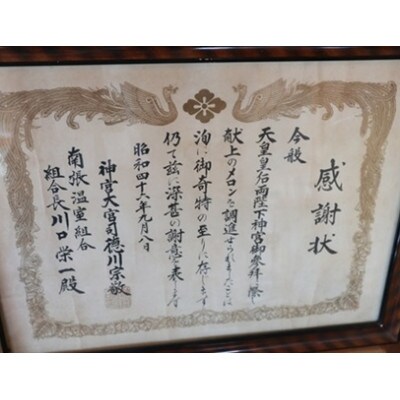 感謝状
今般
天皇皇后両陛下神宮御参拝の際
献上のメロンを調進せられましたことは
洵に御奇特の至りに存じます
仍て茲に深甚の謝意を表します
昭和四十六年九月八日
神宮大宮司徳川宗敬
南張温室組合
組合長川口栄一殿